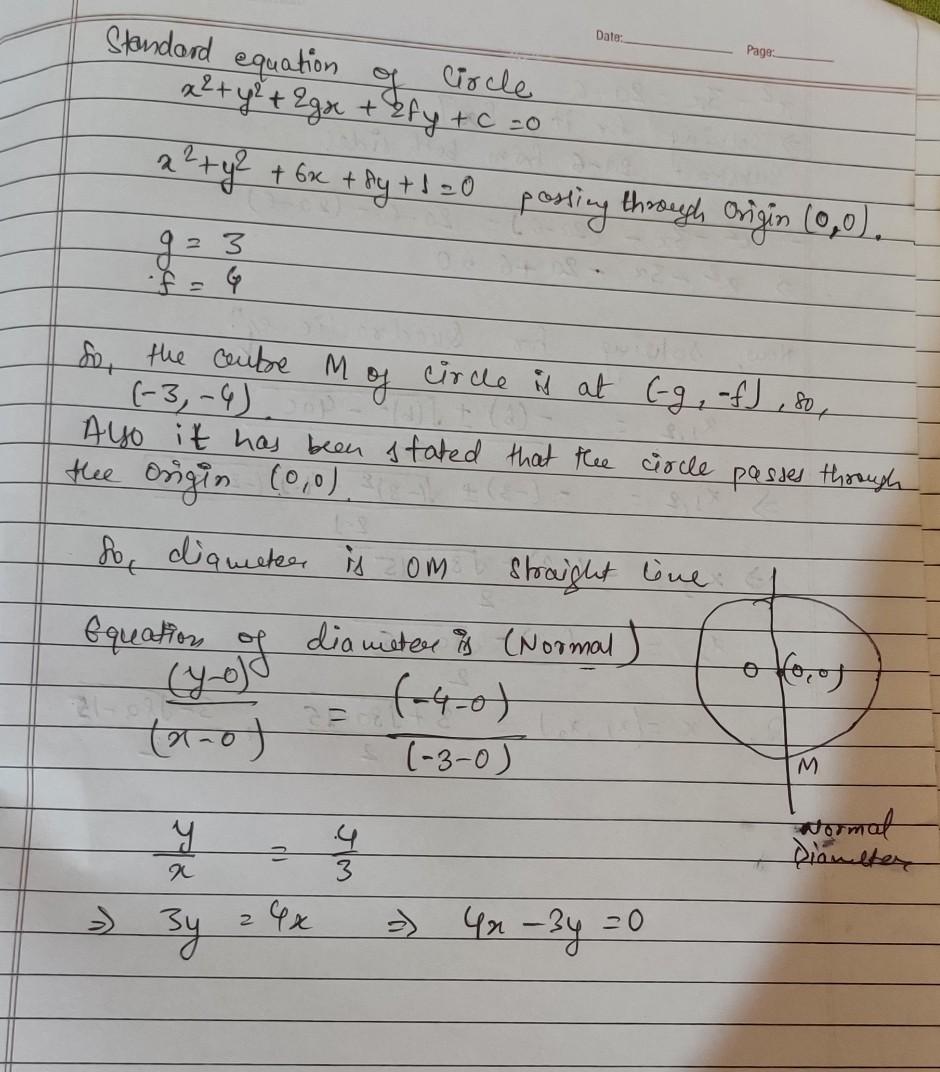 Date:
Page:
Standard equation of Circle
x² + y² + 2gx + 2fy + c = 0
x² + y² + 6x + 8y + 1 = 0 passing through Origin (0,0).
g = 3
f = 4
So, the centre M of circle is at (-g, -f), so,
(-3, -4).
Also it has been stated that the circle passes through
the Origin (0,0).
So, diameter is OM straight line
Equation of diameter is (Normal)
(y-0)/(x-0) = (-4-0)/(-3-0)
O (0,0)
M
Normal
Diameter
y/x = 4/3
⇒ 3y = 4x ⇒ 4x - 3y = 0